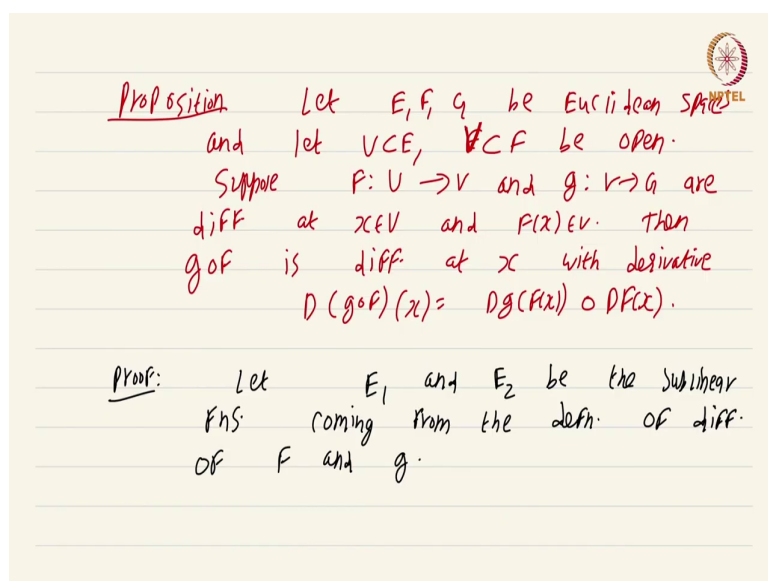 NPTEL
Proposition Let E, F, G be Euclidean spaces
and let U⊂E, V⊂F be open.
Suppose F: U → V and g: V→G are
diff at x∈U and F(x)∈V. Then
g∘F is diff. at x with derivative
D(g∘F)(x) = Dg(F(x)) ∘ DF(x).
Proof: Let E₁ and E₂ be the sublinear
Fns. coming from the defn. of diff.
of F and g.